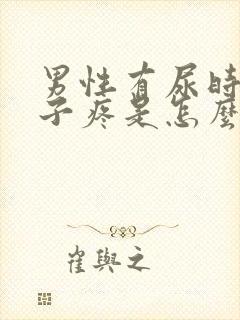 男性有尿时
子疼是怎麼
崔與之